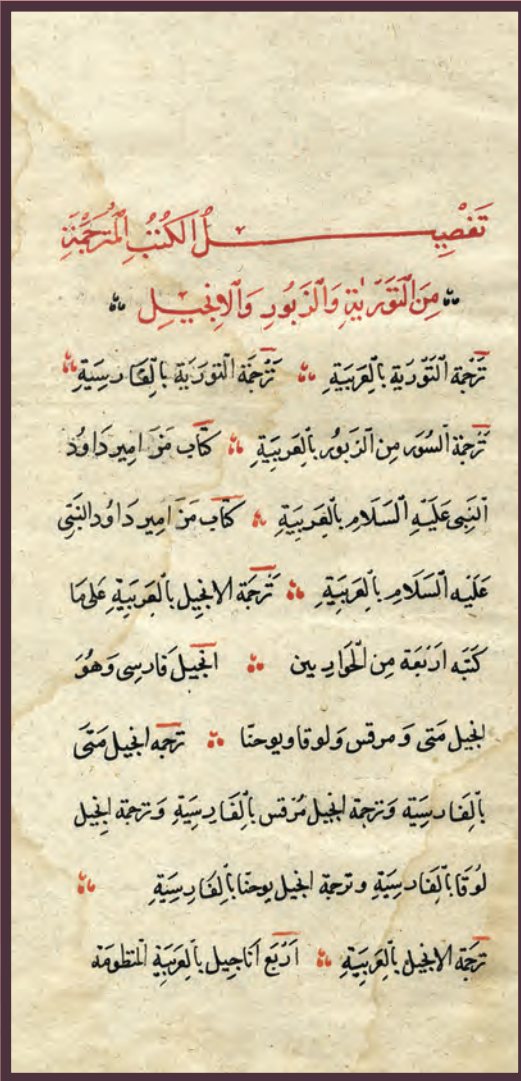 تَفْصِيلُ الْكُتُبِ الْمُتَرْجَمَةِ
مِنَ التَّوْرٰيةِ وَالزَّبُورِ وَالْاِنْجِيلِ
تَرْجَمَة التَّوْرَية بِالْعَرَبِيَّةِ تَرْجَمَة التَّورَية بِالْفَارْسِيَّةِ
تَرْجَمَة السُّوَر مِن الزَّبُور بِالْعَرَبِيَّةِ كتَاب مَزَامِير دَاوُد
النَّبِى عَلَيْهِ السَّلَام بِالْعَرَبِيَّةِ كتَاب مَزَامِير دَاوُد النَّبِّى
عَلَيْه السَّلَام بِالْعَرَبِيَّةِ تَرْجَمَة الانجِيل بِالْعَرَبِيَّةِ عَلَى مَا
كَتَبَه اَرْبَعَة مِن الْحَوَارِيين انجِيل فَارسِى وَهُوَ
انجيل مَتى وَمرقس وَلوقا ويوحنّا ترجمه انجيل مَتَى
بِالْفَارسِيَّة وَترجمَة انجيل مُرْقس بِالْفَارِسِيَّةِ وَترجمة انجيل
لُوقَا بِالْفَارسِيَّةِ وترجمة انجيل يوحنّا بِالْفَارِسِيَّةِ
تَرجَمَة الانجيل بِالْعَرَبِيَّةِ اَرْبَع اَنَاجِيل بِالْعَرَبِيَّةِ الْمَنظومَة